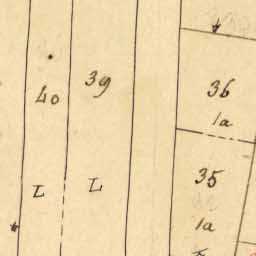 40
39
36
1a
L
L
35
1a